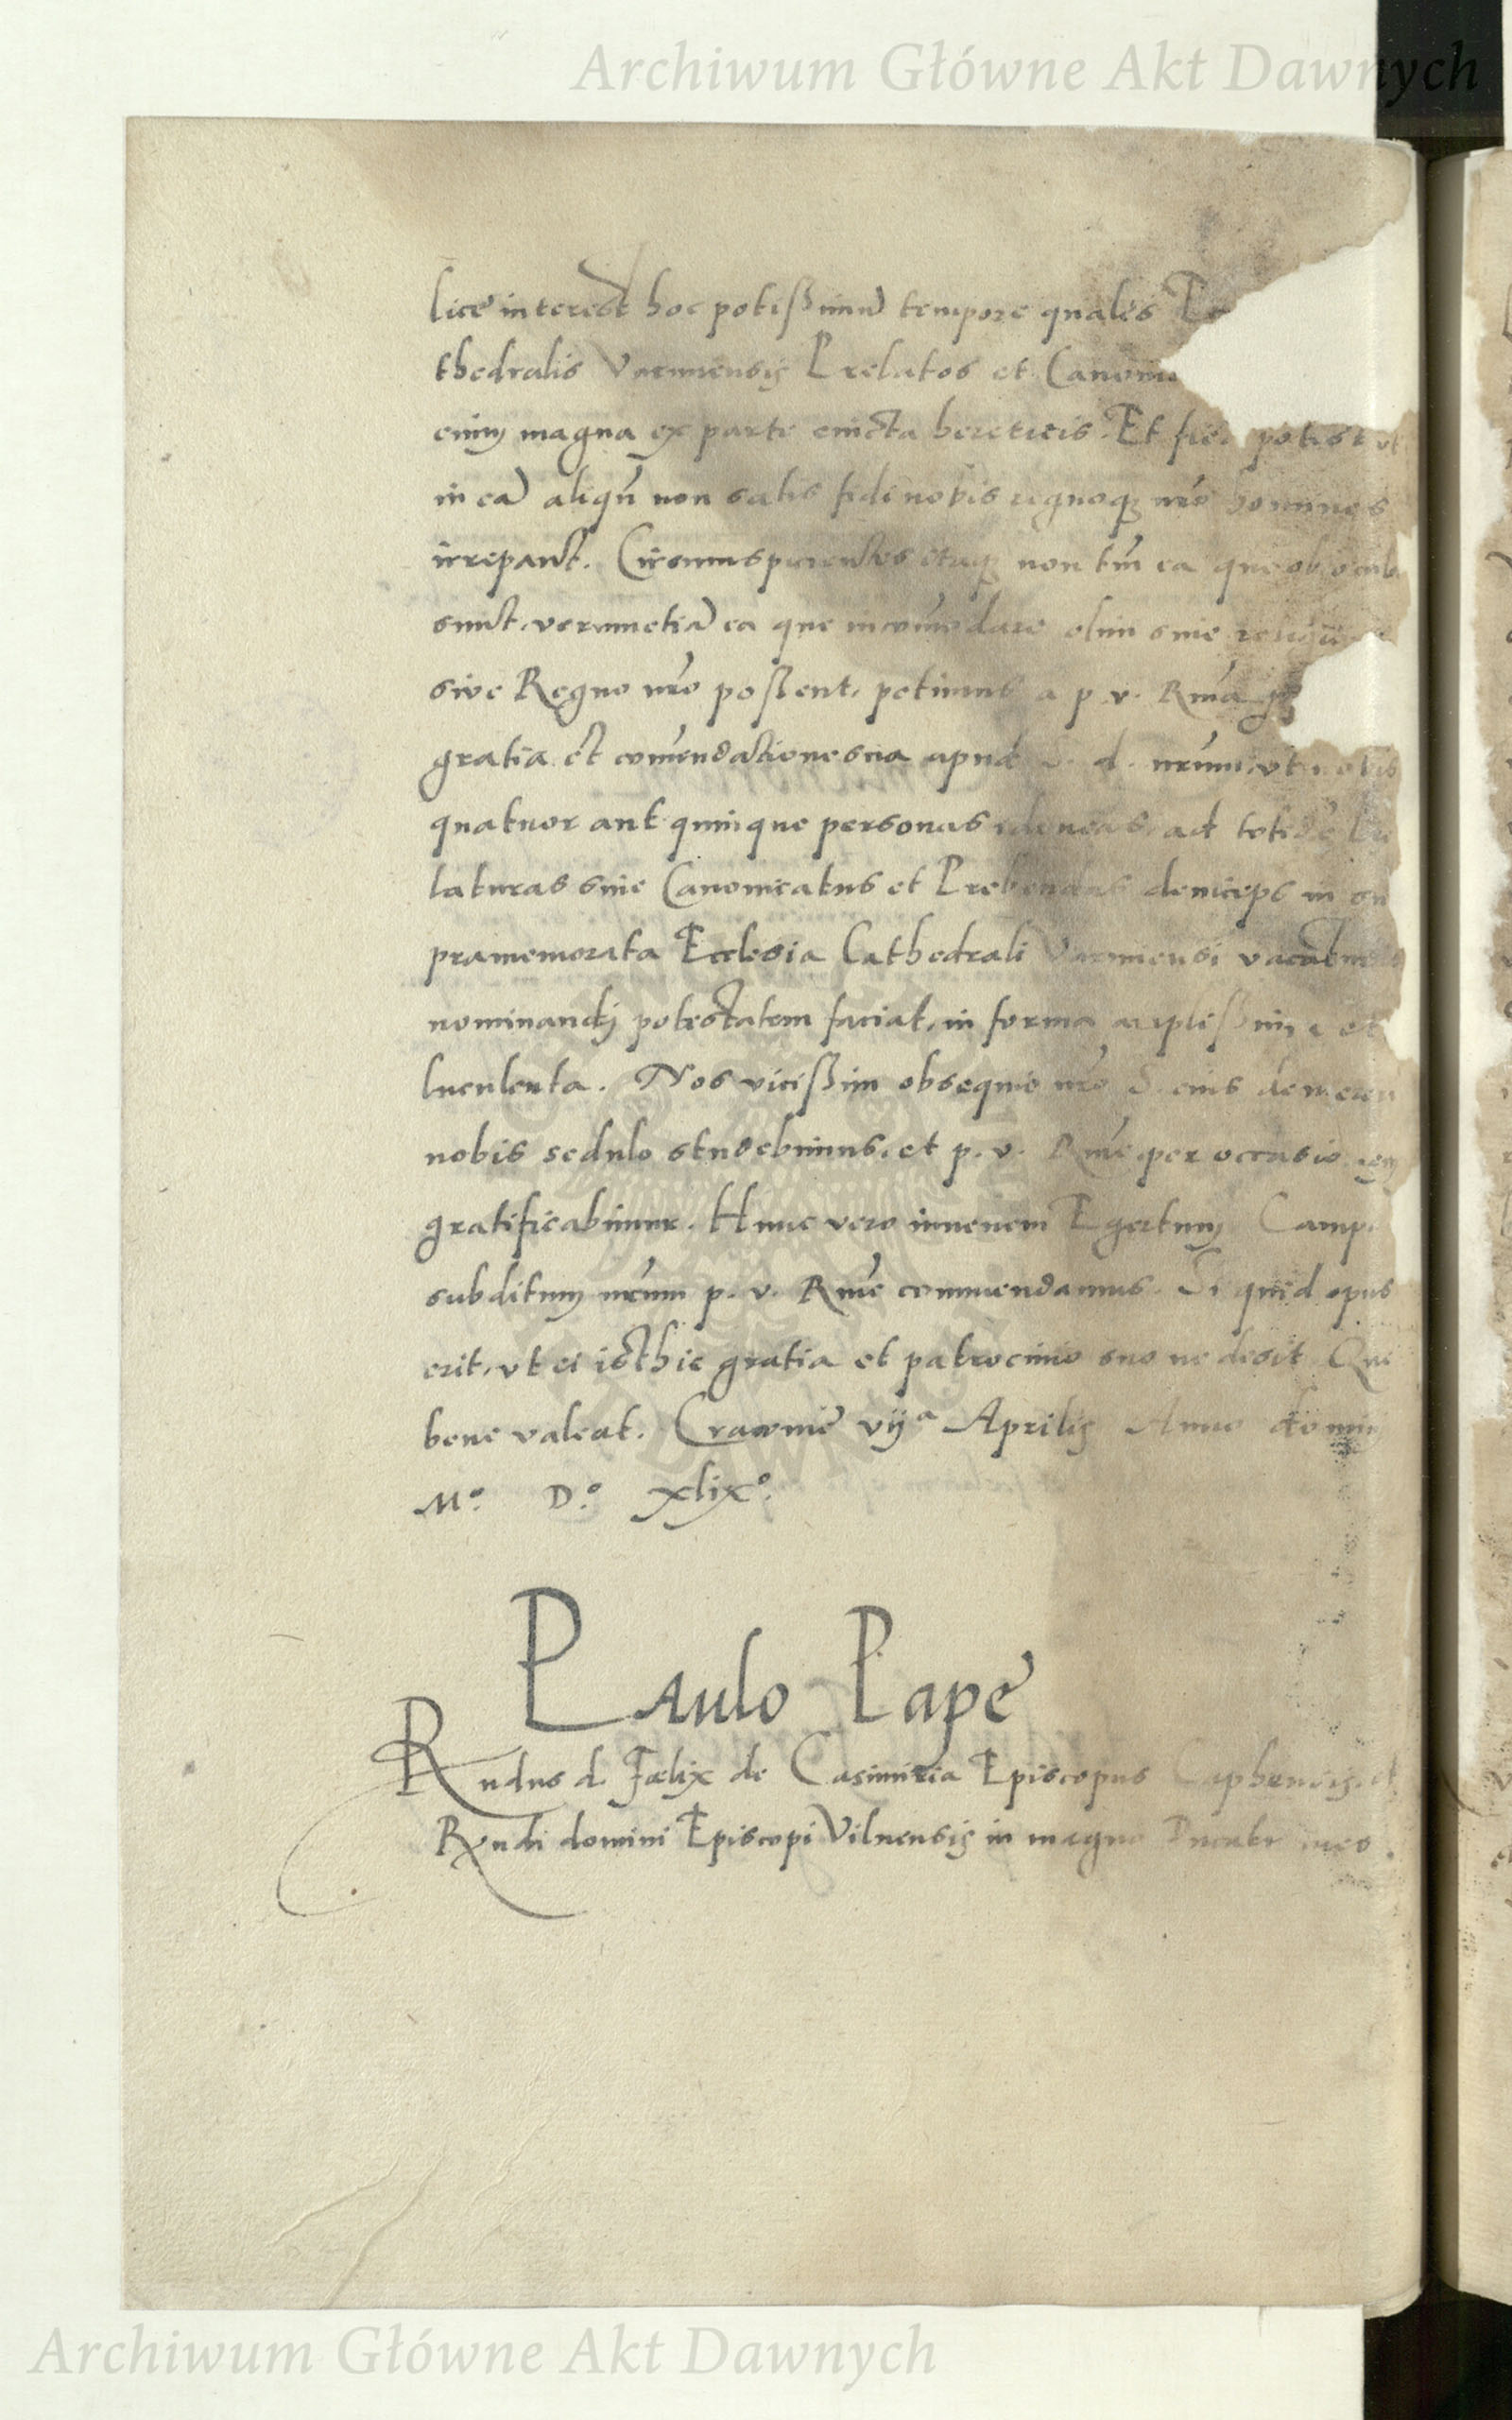 Archiwum Główne Akt Dawnych
licē interest hoc potissimū tempore quales
thedralis Varmiensis Prelatos et Canoni
enim magna ex parte cincta hereticis. Et fieri potest ut
in eā aliqn̄ non satis fidi nobis regnoq; nr̄o homines
irrepant. Circumspicientes itaq; non tm̄ ea que ob ocul
sunt, verumetiā ea que incōmodare olim sive religioni
sive Regno nr̄o possent, petimus a p. v. Rma
gratia et com̄endatione sua apud s. d. nrūm, ut nobis
quatuor aut quinque personas idoneas, ad totidē
laturas sive Canonicatus et Prebendas deinceps in su
pramemorata Ecclesia Cathedrali Varmiensi vacabun
nominandj potestatem faciat, in forma amplissima et
luculenta. Nos vicissim obsequio nr̄o S. eius demereri
nobis sedulo studebimus, et p. v. Rme per occasionem
gratificabimur. Hunc vero iuvenem Egertum Camp.
subditum nrūm p. v. Rme commendamus. Si quid opus
erit, ut ei isthic gratia et patrocinio suo ne desit Que
bene valeat. Cracovie vijª Aprilis Anno domini
Mº. Dº. xlixº.
Paulo Pape
Rndus d. Fælix de Casimiria Episcopus Caphensis, et
Rndi domini Episcopi Vilnensis in magno Ducatu meo.
Archiwum Główne Akt Dawnych